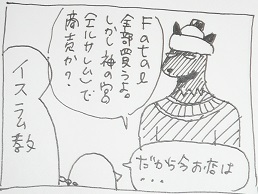 Fatal
全部買うよ。
しかし神の宮
(エルサレム)で
商売か?
だから今お店は
・・・
イスラム教